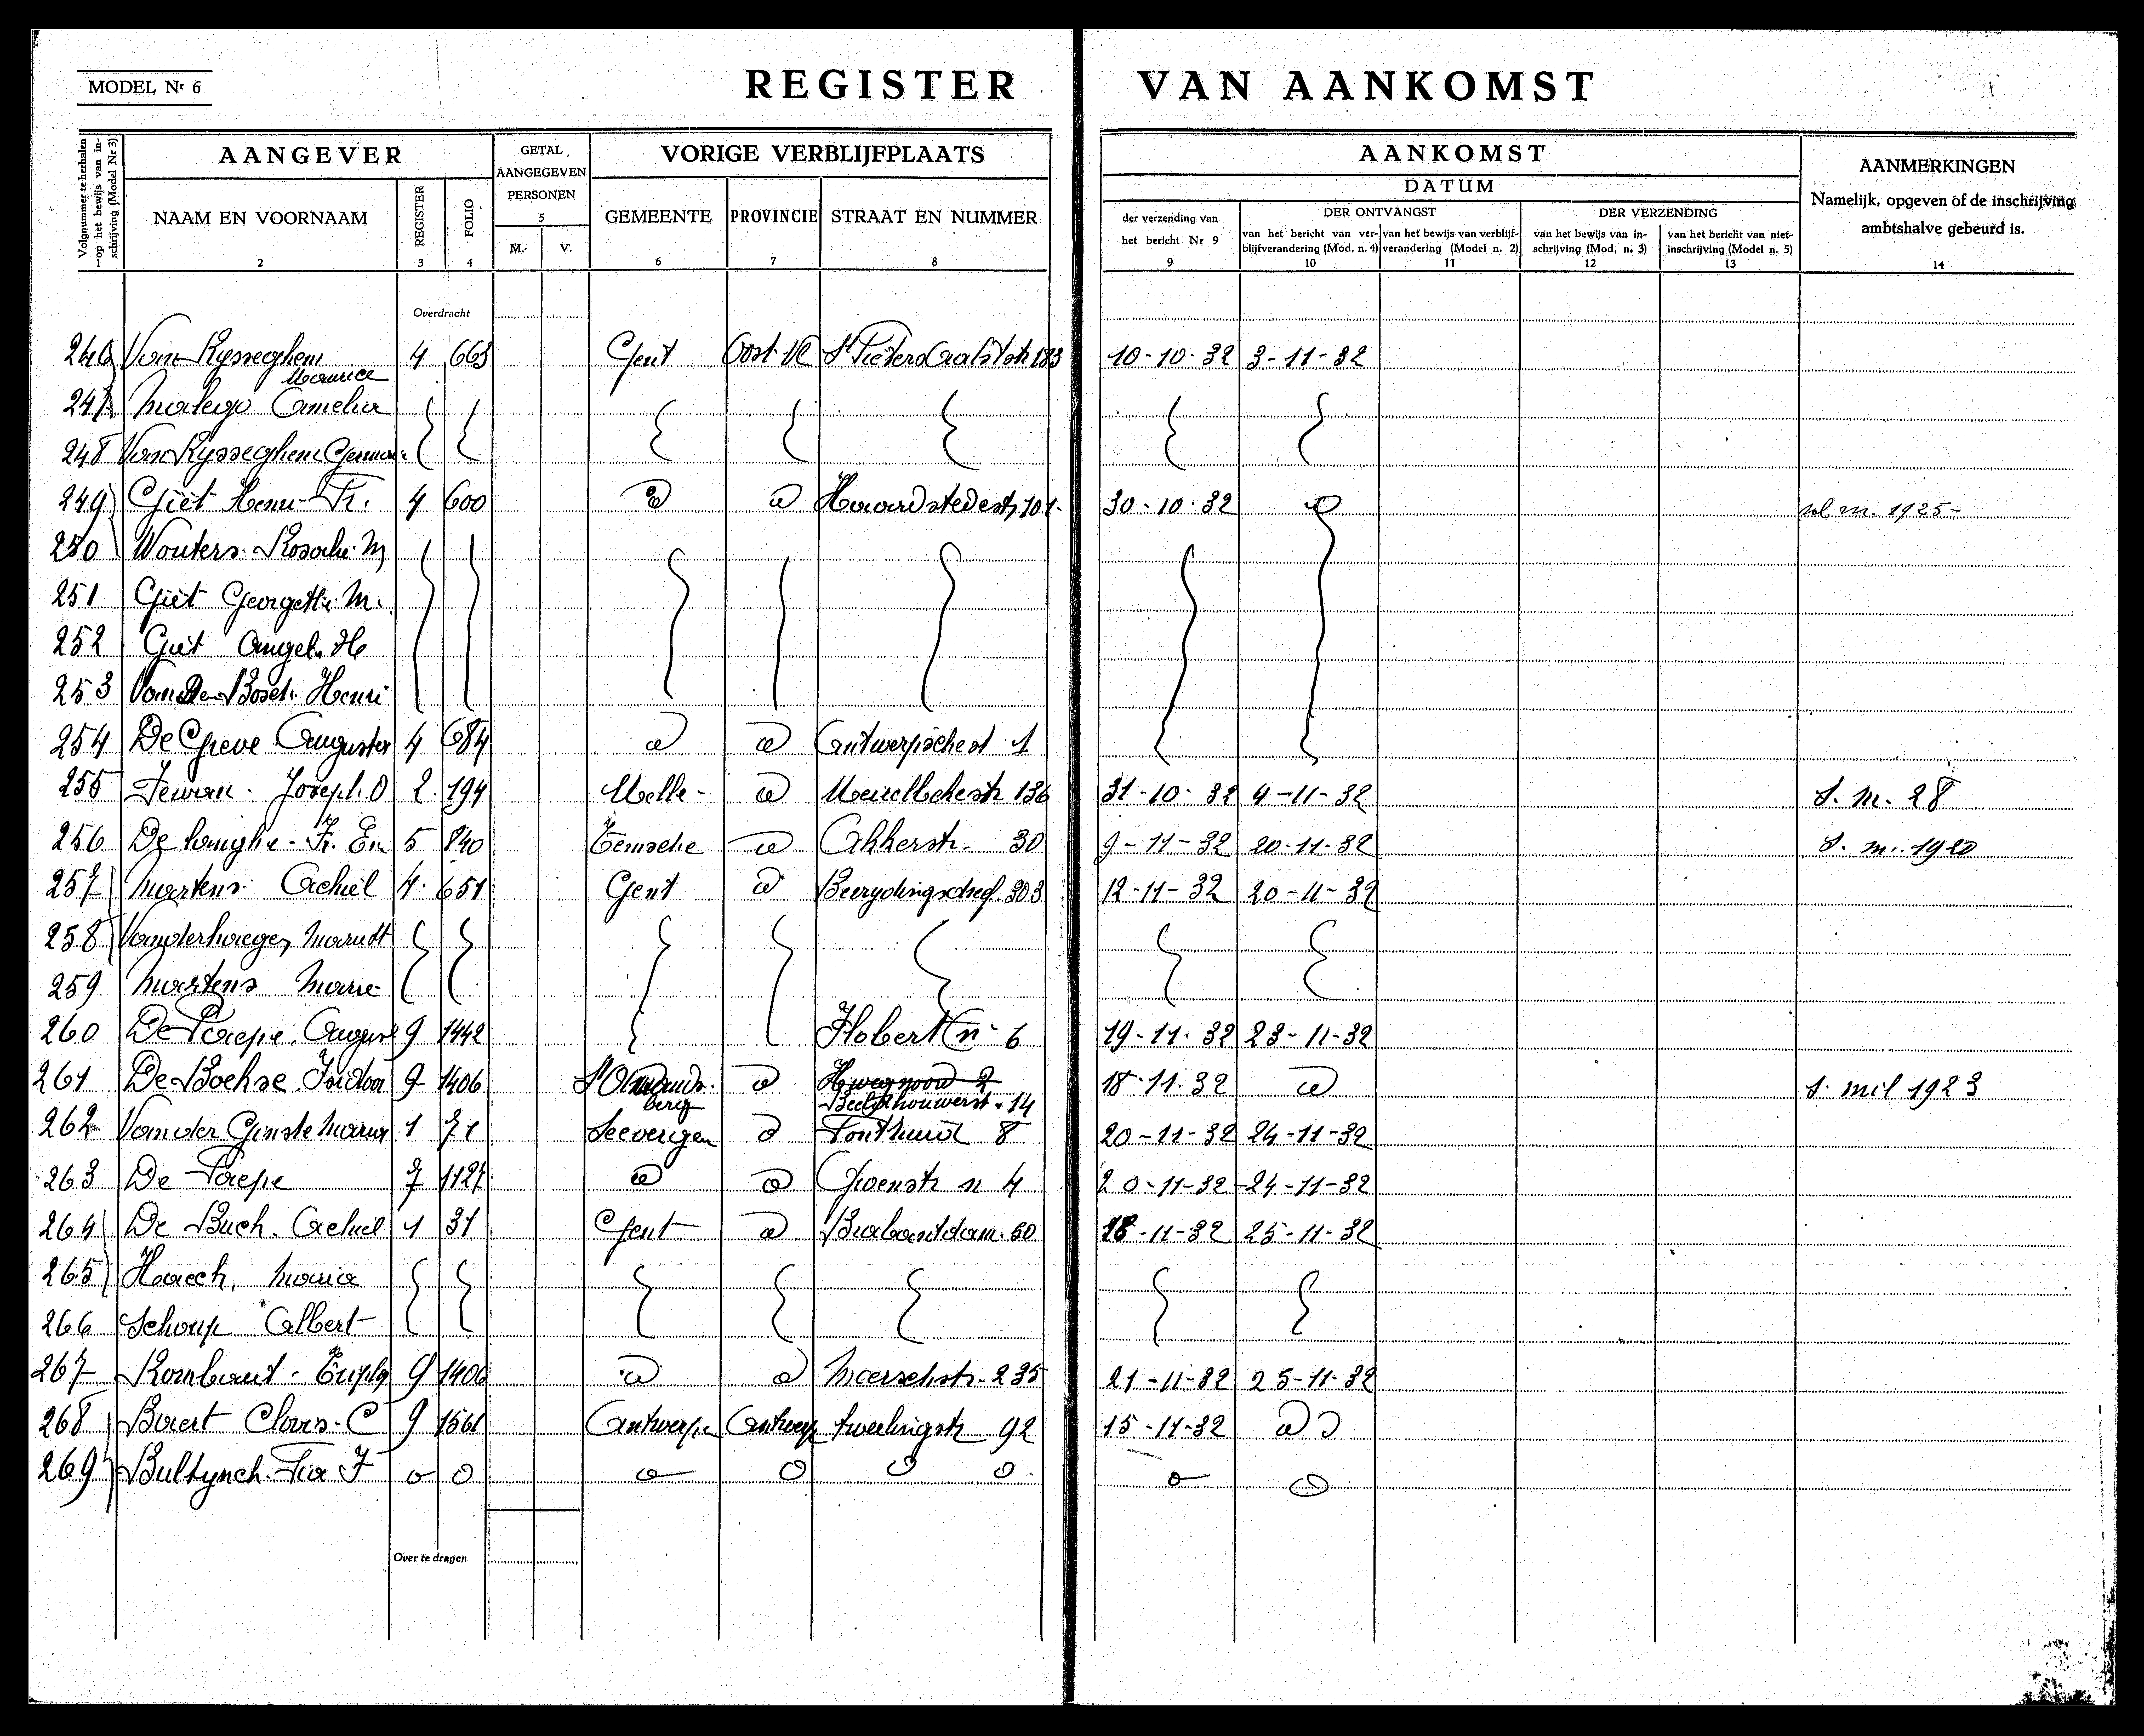 MODEL Nr 6
REGISTER VAN AANKOMST
Volgnummer te herhalen op het bewijs van inschrijving (Model Nr 3)
AANGEVER
GETAL AANGEGEVEN PERSONEN
VORIGE VERBLIJFPLAATS
AANKOMST
DATUM
AANMERKINGEN
Namelijk, opgeven of de inschrijving ambtshalve gebeurd is.
NAAM EN VOORNAAM
REGISTER
FOLIO
M.
V.
GEMEENTE
PROVINCIE
STRAAT EN NUMMER
der verzending van het bericht Nr 9
DER ONTVANGST
van het bericht van verblijfverandering (Mod. n. 4)
van het bewijs van verblijfverandering (Model n. 2)
DER VERZENDING
van het bewijs van inschrijving (Mod. n. 3)
van het bericht van niet-inschrijving (Model n. 5)
1 2 3 4 5 6 7 8 9 10 11 12 13 14
Overdracht
246 Van Rysseghem Maurice 4 663 Gent Oost-Vl 183 10-10-32 3-11-32
247 Camelia
248 Van Rysseghem
249 Giet Henri Fr. 4 600 30-10-32 1925-
250 Wouters
251 Giet Georgette M.
252 Giet Angel. H
253 Van Den Bosch Henri
254 De Greve 4 684 Antwerpschest 1
255 Joseph O 2 194 Melle Meirelbekestr 136 31-10-32 4-11-32 S. M. 28
256 5 840 Temsche Akkerstr. 30 9-11-32 20-11-32 S. m. 1920
257 Martens Achiel 4 651 Gent 303 12-11-32 20-11-32
258 Vanderhaegen
259 Martens Marie
260 De Paepe August 9 1442 Flobert n 6 19-11-32 23-11-32
261 De Boehse Isidoor 9 1406 St Amandsberg Beeldhouwerst 14 18-11-32 S. mil 1923
262 Van der Ginste Maria 1 71 Seevergem 8 20-11-32 24-11-32
263 De Paepe 7 1127 Groenstr n 4 20-11-32 24-11-32
264 De Buck Achiel 1 31 Gent Brabantdam 60 18-11-32 25-11-32
265 Maria
266 Schoup Albert
267 Rombaut 9 1406 Meerschstr. 235 21-11-32 25-11-32
268 Baert Clovis C 9 Antwerpen Antwerp tweelingstr 92 15-11-32
269 Bultynck
Over te dragen